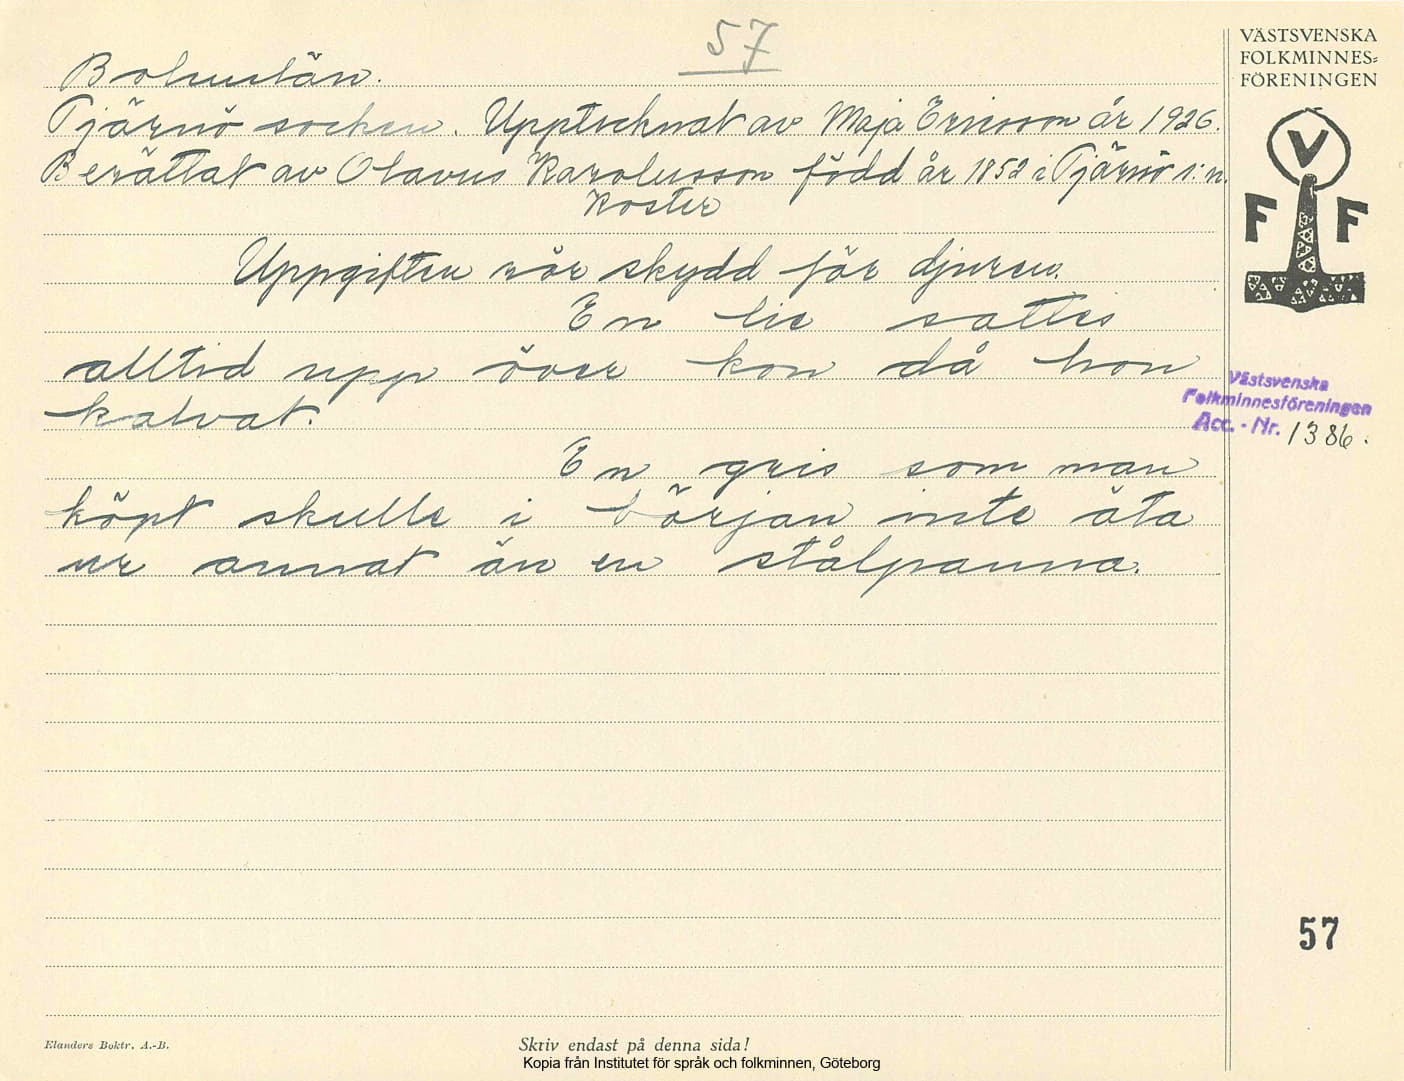 57
Bohuslän.
Tjärnö socken. Upptecknat av Maja Ericsson år 1926.
Berättat av Olavus Karolusson född år 1852 i Tjärnö s:n.
Koster
Uppgiften rör skydd för djuren.
En lie sattes
alltid upp över kon då hon
kalvat.
En gris som man
köpt skulle i början inte äta
ur annat än en stålpanna.
VÄSTSVENSKA
FOLKMINNES=
FÖRENINGEN
V
F F
Västsvenska
Folkminnesföreningen
Acc. - Nr. 1386.
57
Elanders Boktr. A.-B.
Skriv endast på denna sida!
Kopia från Institutet för språk och folkminnen, Göteborg